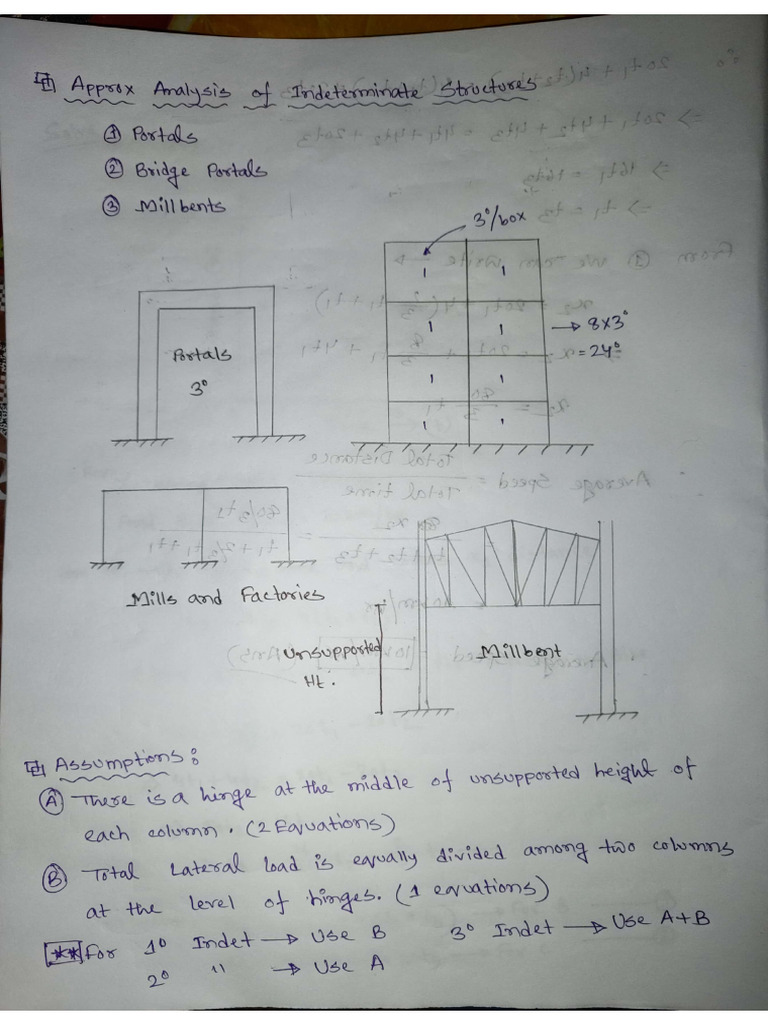 Approx Analysis of Indeterminate Structures
① Portals
② Bridge Portals
③ Millbents
3°/box
Portals
3°
1 1
1 1
1 1
1 1
→ 8x3°
= 24°
Mills and Factories
Unsupported
Ht.
Millbent
Assumptions:
Ⓐ There is a hinge at the middle of unsupported height of
each column. (2 Equations)
Ⓑ Total Lateral load is equally divided among two columns
at the level of hinges. (1 equations)
** For 1° Indet → Use B 3° Indet → Use A+B
2° " → Use A